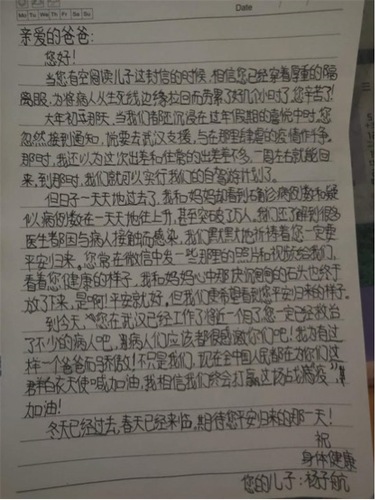 Mo Tu We Th Fr Sa Su
Date
亲爱的爸爸:
您好!
当您有空阅读儿子这封信的时候,相信您已经穿着厚重的隔
离服,为将病人从生死线边缘拉回而劳累了好几个小时了,您辛苦了!
大年初五那天,当我们都还沉浸在这年假期的喜悦中时,您
忽然接到通知,说要去武汉支援,与在那里肆虐的疫情作斗争。
那时,我还以为这次出差和往常的出差差不多,一周左右就能回
来,到那时,我们就可以实行我们的自驾游计划了。
但日子一天天地过去了,我和妈妈却看到确诊病例数和疑
似病例数在一天天地往上升,甚至突破了万人。我们还了解到很多
医生都因与病人接触而感染,我们默默地祈祷着您一定要
平安归来。您常在微信中发一些那里的照片和视频给我们,
看着您健康的样子,我和妈妈心中那块沉甸甸的石头也终于
放了下来,是啊!平安就好,但我们更希望看到您平安归来的样子。
到今天,您在武汉已经工作了将近一个月了,您一定已经救治
了不少的病人吧,那病人们应该都很感激你们吧!我为有这
样一个爸爸而骄傲!不只是我们,现在全中国人民都在为你们这
群白衣天使喊加油,我相信我们终会打赢这场战“疫”!
加油!
冬天已经过去,春天已经来临,期待您平安归来的那一天!
祝
身体健康
您的儿子:杨子航